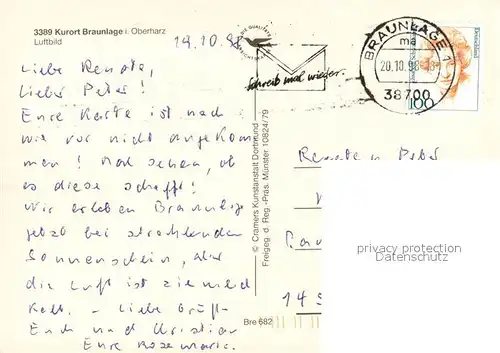 3389 Kurort Braunlage i. Oberharz
Luftbild
19.10.98
Liebe Renate,
Lieber Peter!
Eure Karte ist nach
wie vor nicht angekom
men! Mal sehen, ob
es diese schafft!
Wir erleben Braunlage
jetzt bei strahlendem
Sonnenschein, aber
die Luft ist ziemlich
kalt. - Liebe Grüße
Euch und Christian
Eure Rosemarie.
© Cramers Kunstanstalt Dortmund
Freigeg. d. Reg.-Präs. Münster 10824/79
Bre 682
Schreib mal wieder.
BRAUNLAGE 1
ma
20.10.98-18
38700
Deutschland
100
Renate u. Peter
14
privacy protection
Datenschutz